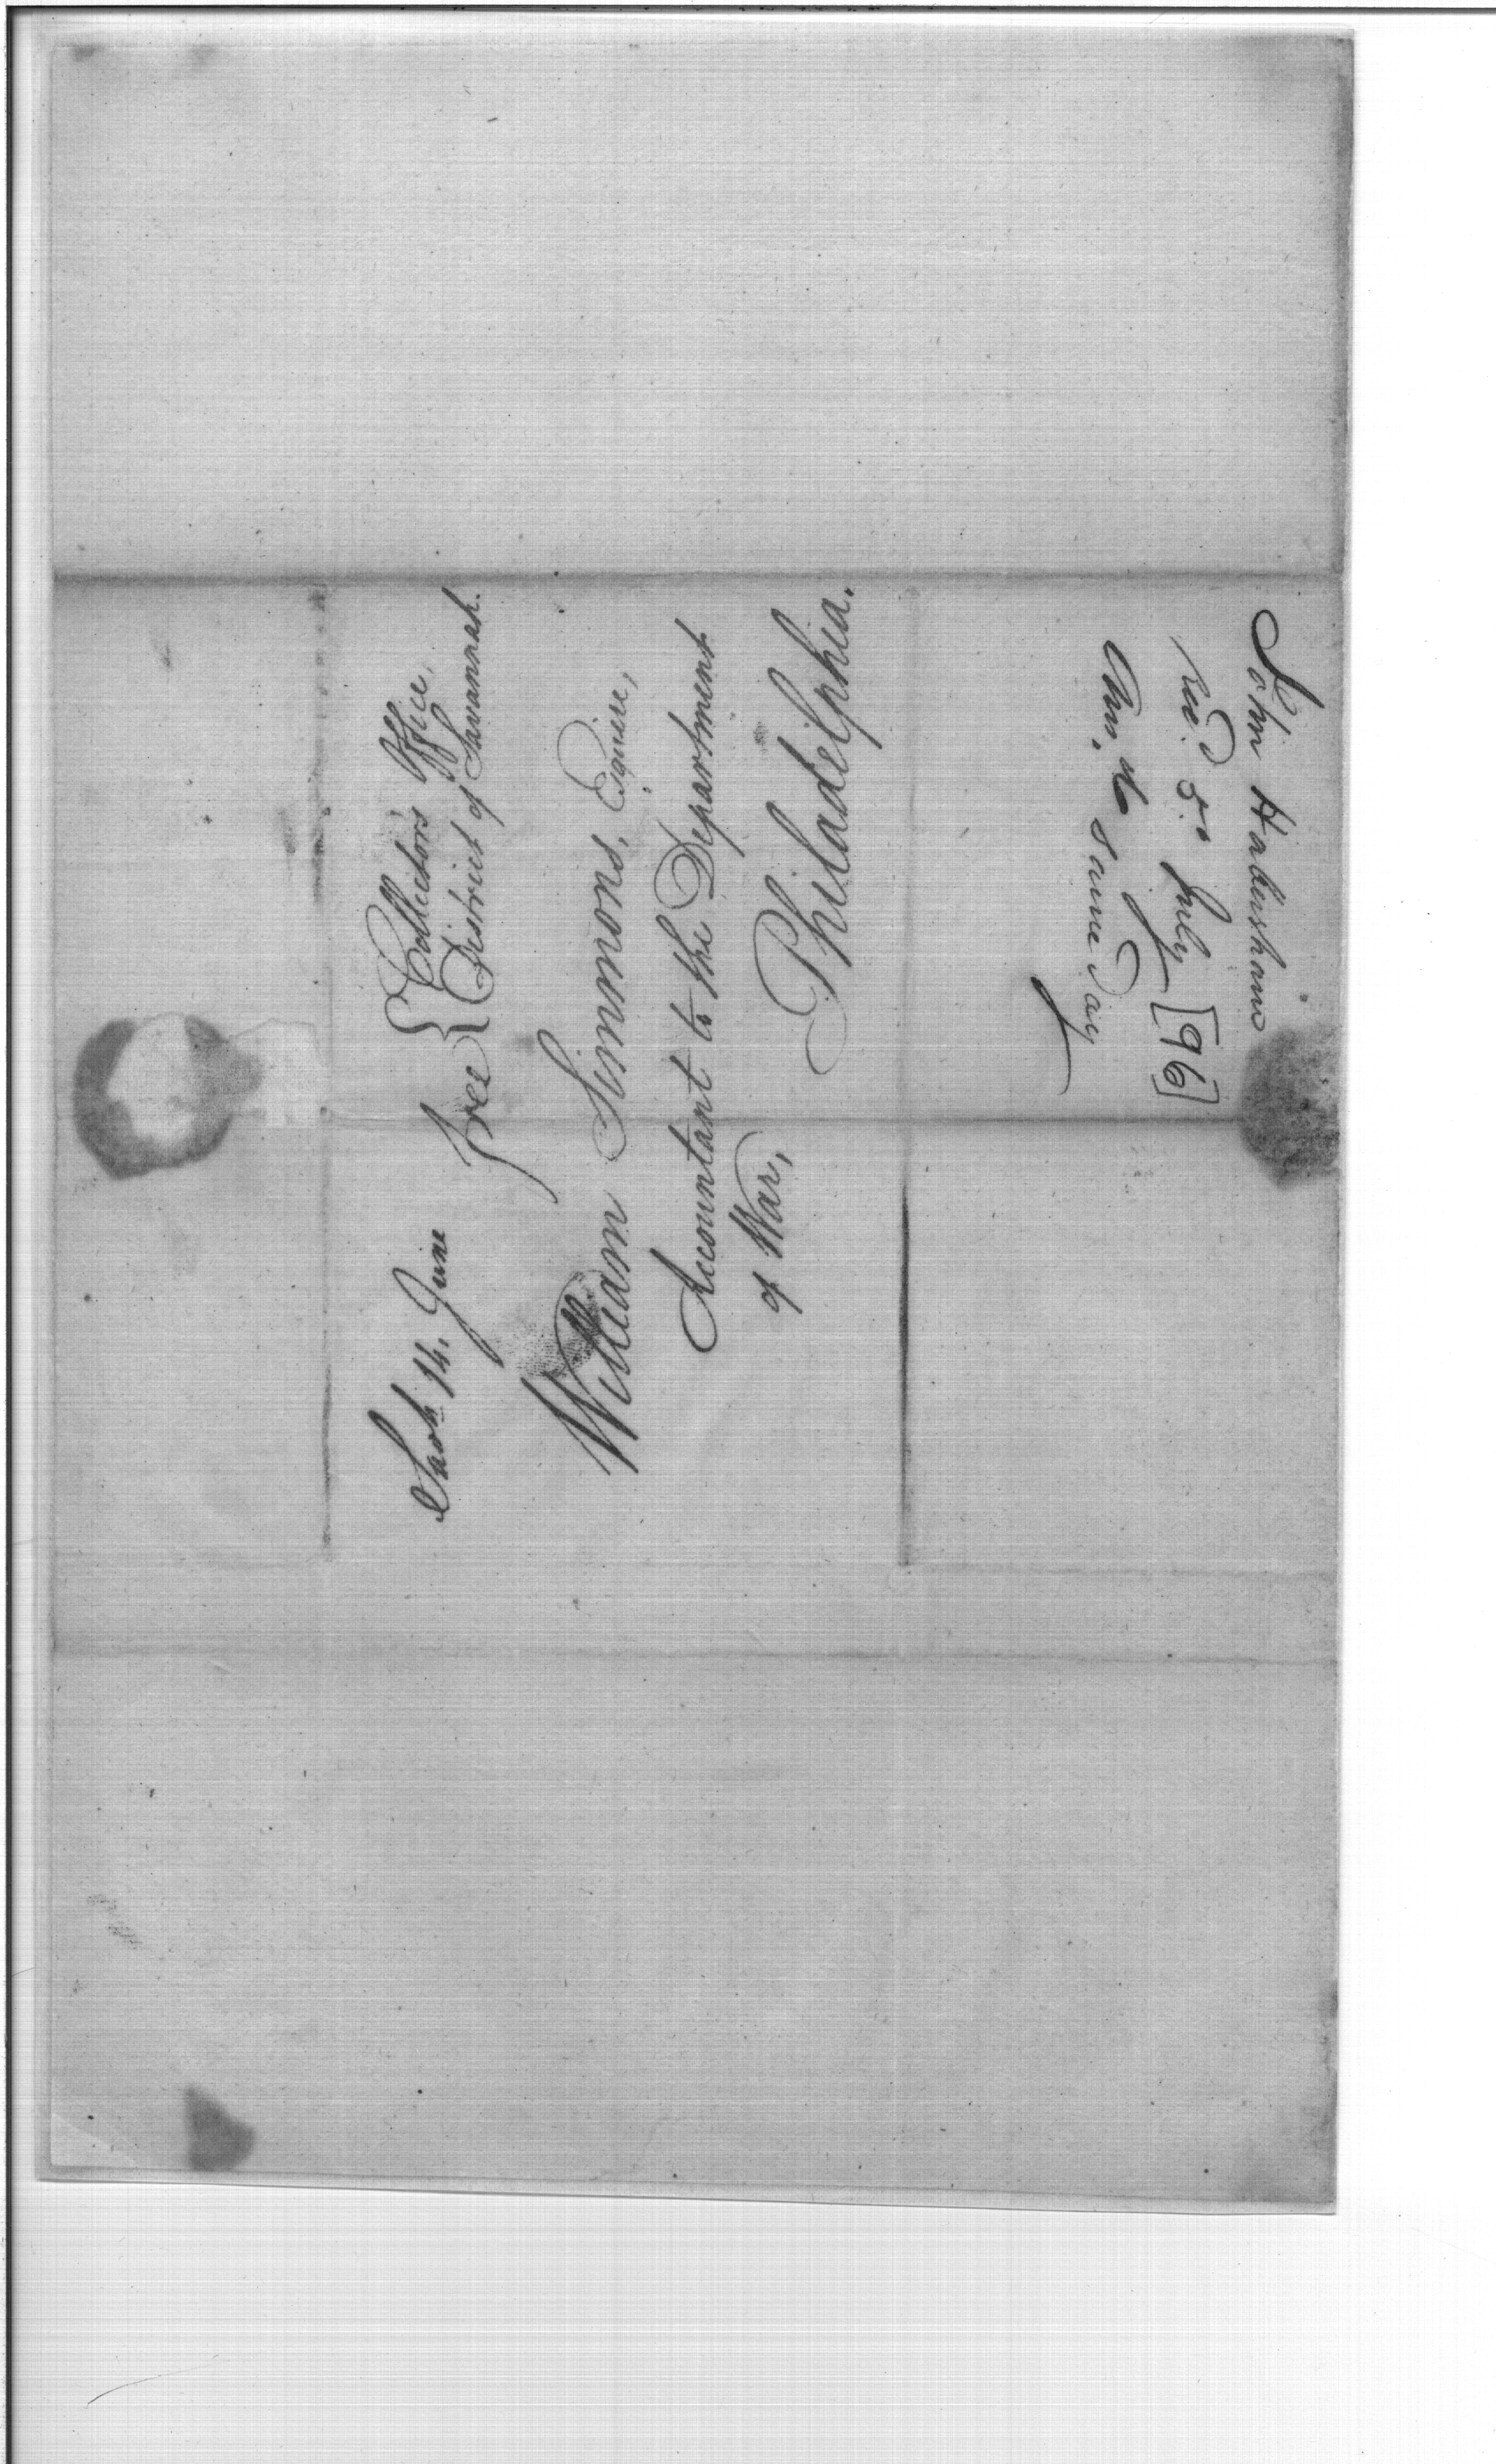 Savh 14. June
free { Collector's Office,
District of Savannah.
William Simmons, Esquire,
Accountant to the Department
of War,
Philadelphia.
John Habersham
Recd. 5. July [96]
Ans. do same Day